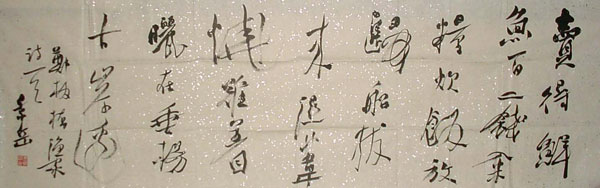 賣得鮮
魚百二錢籴
糧炊飯放
歸船拔
来濕葦
燒難著
曬在垂楊
古岸邊
鄭板橋漁家
诗一首